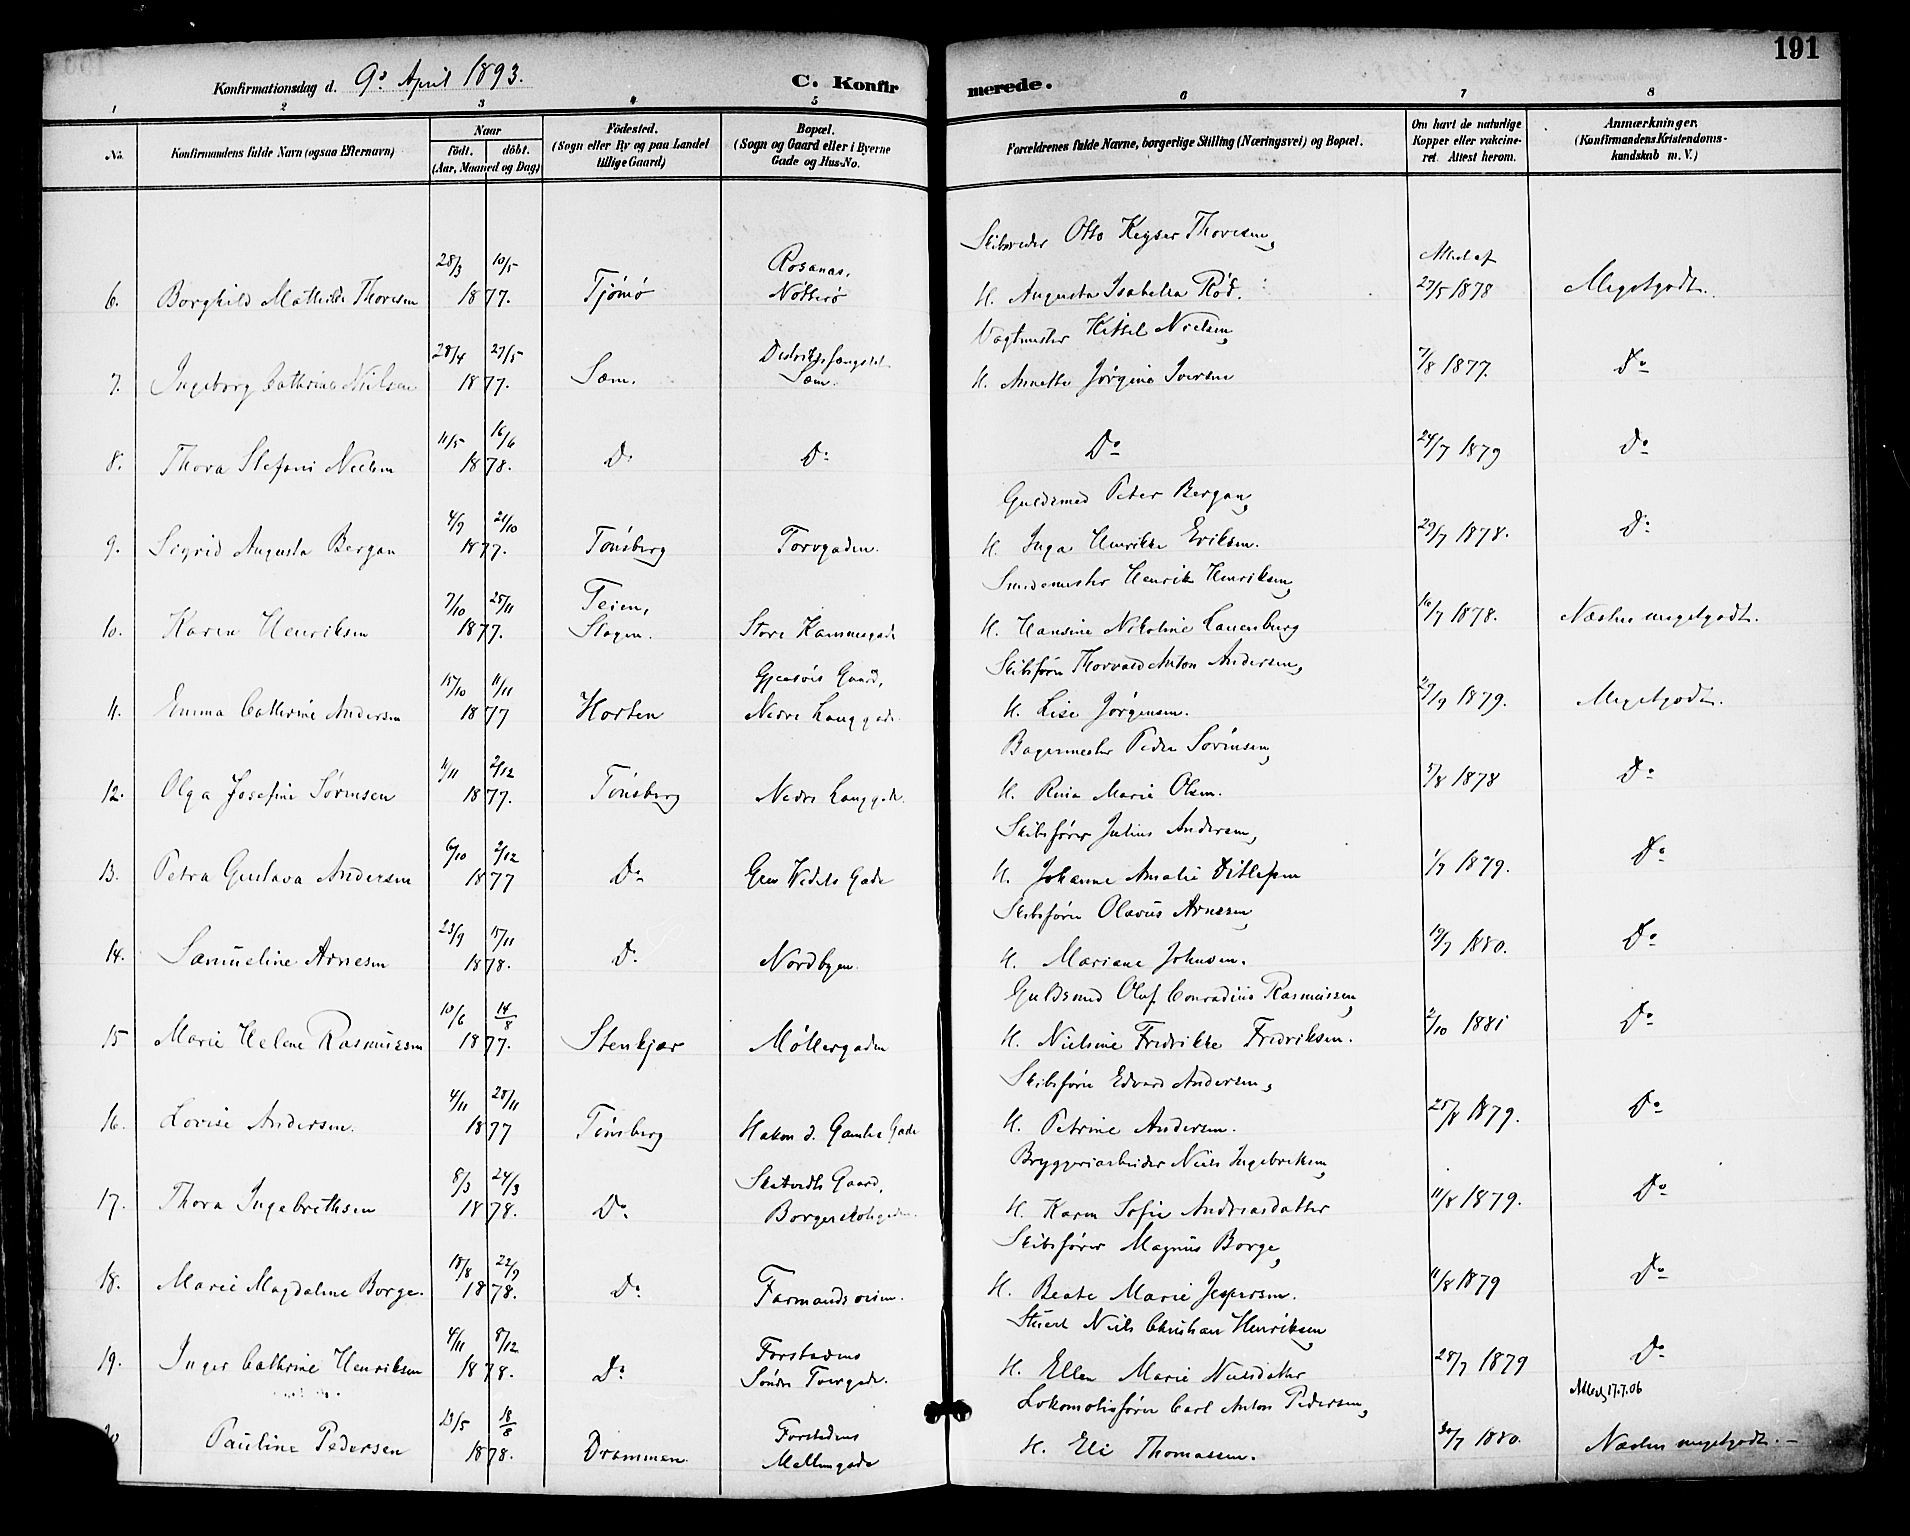 191
Konfirmationsdag d. 9de April 1893. C. Konfirmerede.
1 2 3 4 5 6 7 8
No. Konfirmandens fulde Navn (ogsaa Efternavn) Naar födt. döbt. (Aar, Maaned og Dag) Födested. (Sogn eller By og paa Landet tillige Gaard) Bopæl. (Sogn og Gaard eller i Byerne Gade og Hus-No. Forældrenes fulde Navne, borgerlige Stilling (Næringsvei) og Bopæl. Om havt de naturlige Kopper eller vakcineret. Attest herom. Anmærkninger. (Konfirmandens Kristendomskundskab m. V.)
Skibsreder Otto Keyser Thoresen,
28/3 10/5 Rosanas, Attest af
6. Borghild Mathilde Thoresen 1877. Tjömö Nötterö H. Augusta Isabella Röd. 27/5 1878 Megetgodt.
Vagtmester Kittel Nielsen,
28/4 27/5 Distriktsfængslet
7. Ingeborg Cathrine Nielsen 1877. Sæm. Sæm. H. Annette Jörgine Iversen 7/8 1877. Do
11/5 16/6
8. Thora Stefani Nielsen 1878. Do Do Do 24/7 1879 Do
Guldsmed Peter Bergan,
4/9 21/10
9. Sigrid Augusta Bergan 1877. Tönsberg Torvgaden. H. Inga Henrikke Eriksen. 29/7 1878. Do
Smedemester Henrik Henriksen,
7/10 25/11 Teien,
10. Karen Henriksen 1877. Slagen. Store Kammegade H. Hansine Nikoline Lauenburg 16/7 1878. Næsten megetgodt.
Skibsförer Thorvald Anton Andersen,
15/10 11/11 Gaard,
11. Emma Cathrine Andersen 1877 Horten Nedre Langgade. H. Lise Jörgensen. 29/9 1879. Megetgodt.
Bagermester Peder Sörensen,
11/11 2/12
12. Olga Josefine Sörensen 1877. Tönsberg Nedre Langgade. H. Rina Marie Olsen. 5/8 1878 Do
Skibsförer Julius Andersen,
6/10 2/12
13. Petra Gustava Andersen 1877 Do Grev Wedels Gade H. Johanne Amalie Ditlefsen 1/7 1879. Do
Skibsförer Olavus Arnesen,
23/9 15/11
14. Samueline Arnesen 1878. Do Nordbyen. H. Mariane Johnsen. 19/7 1880. Do
Guldsmed Oluf Conradius Rasmussen,
10/6 14/8
15 Marie Helene Rasmussen 1877. Stenkjær Möllergaden H. Nielsine Fredrikke Fredriksen. 2/10 1881 Do
Skibsförer Edvard Andersen,
4/11 25/11
16. Lovise Andersen. 1877 Tönsberg Hakon d. Gamles Gade H. Petrine Andersen. 25/8 1879. Do
Bryggeriarbeider Niels Ingebretsen,
8/3 24/3 Gaard,
17. Thora Ingebrethsen 1878. Do Borgerskolegaden. H. Karen Sofie Andreasdatter 11/8 1879. Do
Skibsförer Magnus Borge,
18/8 22/9
18. Marie Magdalene Borge. 1878. Do Farmandsveien. H. Beate Marie Jespersen. 11/8 1879 Do
Stuert Niels Christian Henriksen,
4/11 8/12 Forstadens
19. Inger Cathrine Henriksen 1878. Do Söndre Torvgade. H. Ellen Marie Nielsdatter 28/7 1879 Do
Lokomotivförer Carl Anton Pedersen, Attest 17.7.06
23/5 18/8 Forstadens
Pauline Pedersen 1878. Drammen. Mellemgade H. Eli Thomassen. 20/7 1880. Næsten megetgodt. –